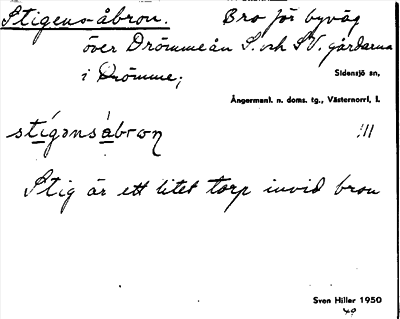 Stigens-åbron. Bro för byväg
över Drömmeån S. och SV. gårdarna
i Drömme;
Sidensjö sn,
Ångermanl. n. doms. tg., Västernorrl. l.
stígənsábron
!!!
Stig är ett litet torp invid bron
Sven Hiller 1950
49